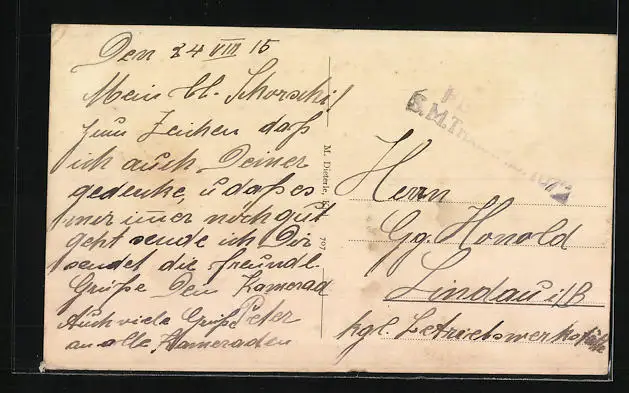 Den 24 VIII 15
Mein lb. Schorschi!
Zum Zeichen daß
ich auch Deiner
gedenke, u daß es
mir imer noch gut
geht sende ich Dir
sendet die freundl.
Grüße Dein Kamerad
Peter
Auch viele Grüße
an alle Kameraden
M. Dieterle, Kiel
S.M.T
Herrn
Gg. Honold
Lindau i/B
kgl. Betriebswerkstätte